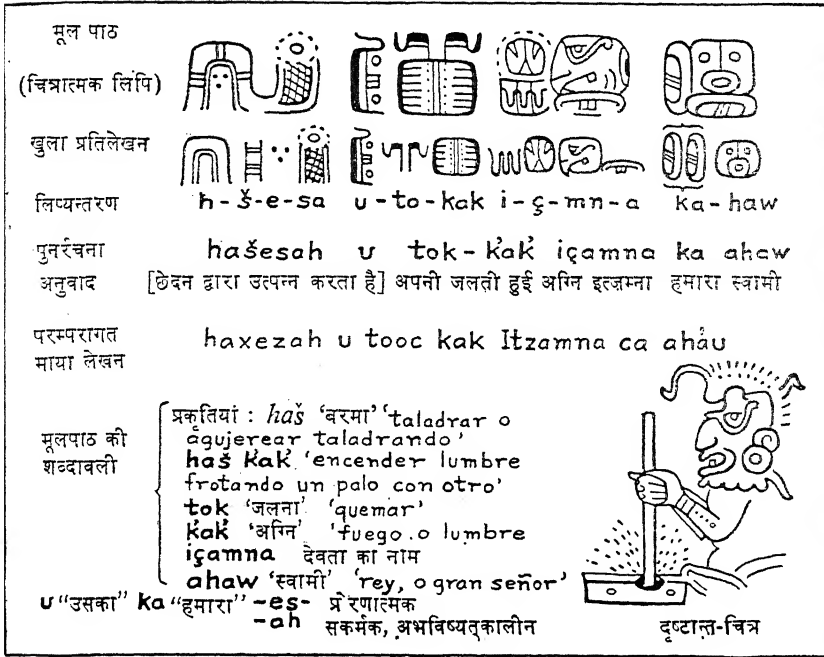 मूल पाठ
(चित्रात्मक लिपि)
खुला प्रतिलेखन
लिप्यन्तरण h - š - e - sa u - to - kak i - ç - mn - a ka - haw
पुनर्रचना hašesah u tok - k̓ak̓ içamna ka ahaw
अनुवाद [छेदन द्वारा उत्पन्न करता है] अपनी जलती हुई अग्नि इत्ज़म्ना हमारा स्वामी
परम्परागत
माया लेखन haxezah u tooc kak Itzamna ca aháu
मूलपाठ की
शब्दावली
प्रकृतियां : haš 'बरमा' 'taladrar o
agujerear taladrando'
haš k̓ak̓ 'encender lumbre
frotando un palo con otro'
tok 'जलना' 'quemar'
k̓ak̓ 'अग्नि' 'fuego o lumbre
içamna देवता का नाम
ahaw 'स्वामी' 'rey, o gran señor'
u "उसका" ka "हमारा" -es- प्रेरणात्मक
-ah सकर्मक, अभविष्यत्कालीन
दृष्टान्त-चित्र